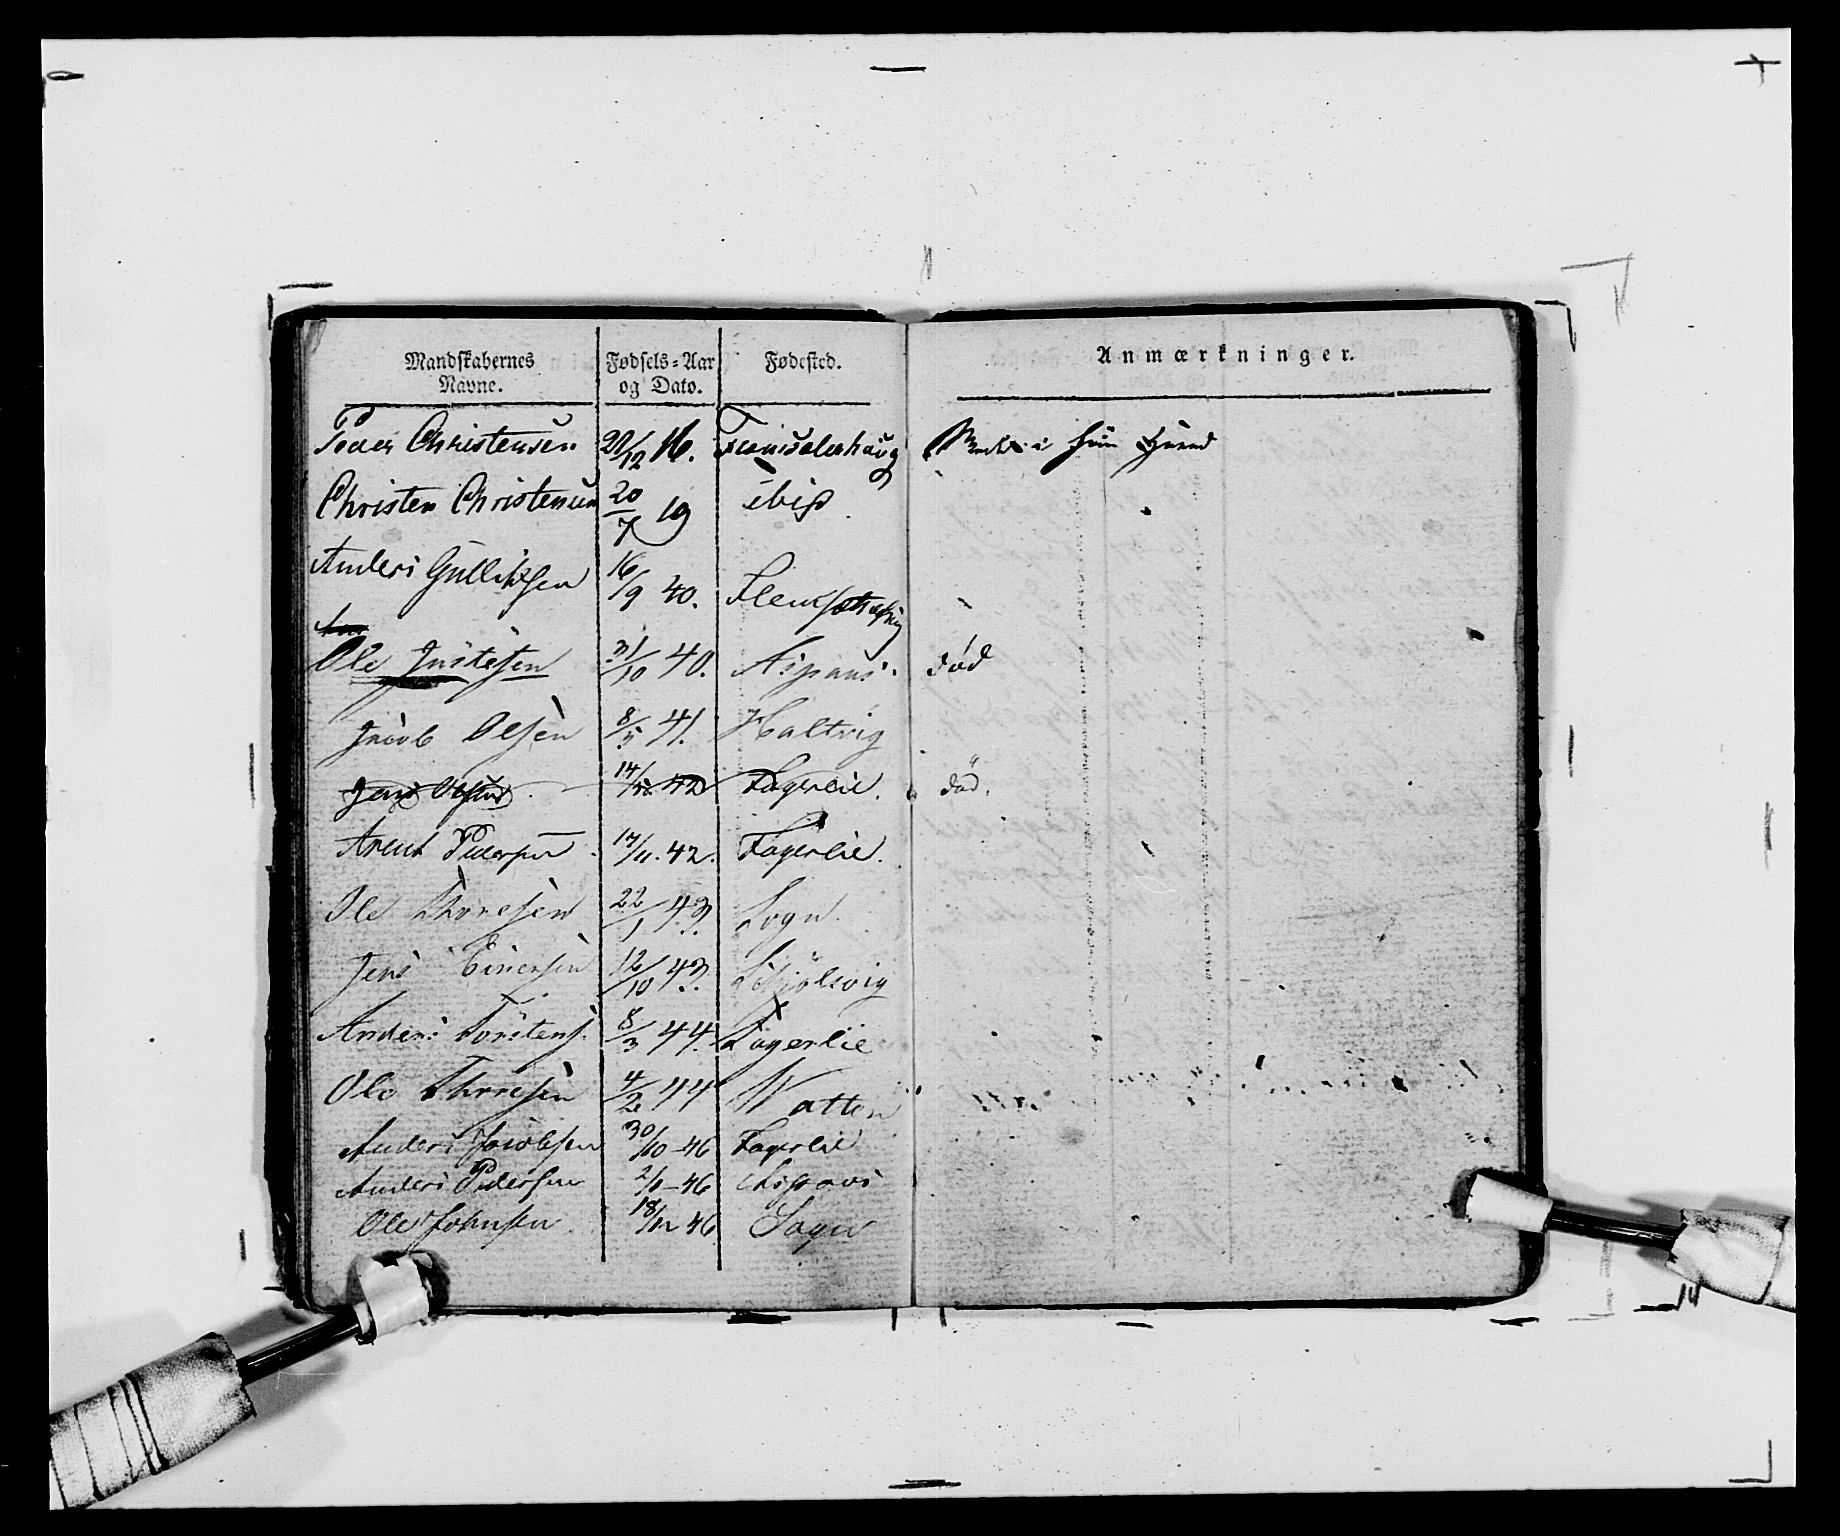 Mandskabernes Navne. Fødsels-Aar og Dato. Fødested. Anmærkninger.
Peder Christensen 20/12 16.
Christen Christensen 20/7 19 ibid
Anders Gulliksen 16/9 40.
Ole Justesen 31/10 40. død
Jacob Olsen 8/5 41. Holtvig
Jens Olsen 42 Fagerlie. död.
Arent Pedersen 17/11. 42. Fagerlie.
Ole Thoresen 22/1 43. Sogn.
Jens 12/10 43.
Anders Torstens. 8/3 44. Fagerlie
Ole Thoresen 4/2 44
Anders Jacobsen 30/10 - 46 Fagerlie
Anders Pedersen 2/1 - 46
Ole Johnsen 18/12 46 Sogn